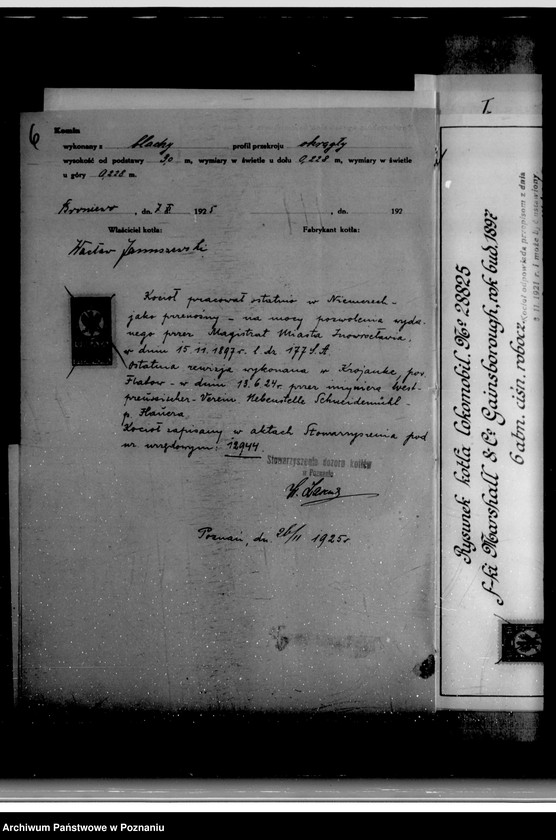 6
Komin
wykonany z blachy profil przekroju okrągły
wysokość od podstawy 9,0 m, wymiary w świetle u dołu 0,228 m, wymiary w świetle
u góry 0,228 m.
, dn. 7 II 1925 , dn. 192
Właściciel kotła: Fabrykant kotła:
Wacław Januszewski
Kocioł pracował ostatnio w Niemczech -
jako przenośny - na mocy pozwolenia wyda-
nego przez Magistrat Miasta Inowrocławia,
w dniu 15.11.1897 r. l. dz. 177
Ostatnia rewizja wykonana w Krojanke, pow.
Flatow - w dniu 13.6.24 r. przez inżyniera West-
preussischer - Verein. Nebenstelle Schneidemühl -
p.
Kocioł zapisany w aktach Stowarzyszenia pod
nr. urzędowym: 12944.
Stowarzyszenie dozoru kotłów
w Poznaniu
Poznań, dn. 26/II 1925 r
I.
Rysunek kotła lokomobil. No 28825
f-ki Marshall & Co Gainsborough, rok bud. 1897
6 atm. ciśn. robocz.
Kocioł odpowiada przepisom z dnia
11. 1921 r. i może być ustawiony
Archiwum Państwowe w Poznaniu